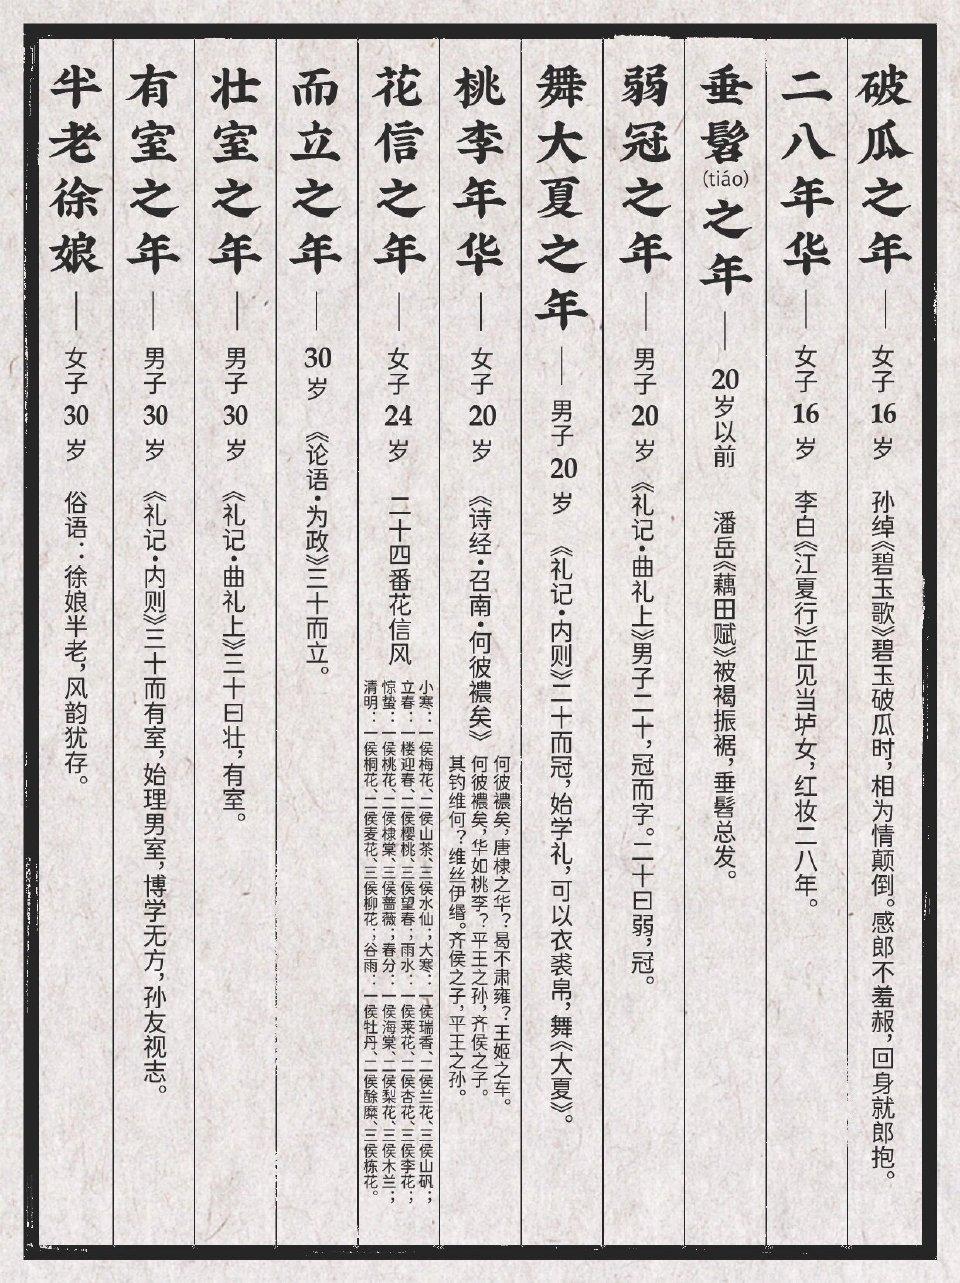 破瓜之年——女子16岁 孙绰《碧玉歌》碧玉破瓜时，相为情颠倒。感郎不羞赧，回身就郎抱。
二八年华——女子16岁 李白《江夏行》正见当垆女，红妆二八年。
垂髫(tiáo)之年——20岁以前 潘岳《藕田赋》被褐振裾，垂髫总发。
弱冠之年——男子20岁《礼记·曲礼上》男子二十，冠而字。二十曰弱，冠。
舞大夏之年——男子20岁 《礼记·内则》二十而冠，始学礼，可以衣裘帛，舞《大夏》。
桃李年华——女子20岁 《诗经·召南·何彼襛矣》
何彼襛矣，唐棣之华？曷不肃雍？王姬之车。
何彼襛矣，华如桃李？平王之孙，齐侯之子。
其钓维何？维丝伊缗。齐侯之子，平王之孙。
花信之年——女子24岁 二十四番花信风
小寒：一侯梅花、二侯山茶、三侯水仙；大寒：一侯瑞香、二侯兰花、三侯山矾；
立春：一楼迎春、二侯樱桃、三侯望春；雨水：一侯莱花、二侯杏花、三侯李花；
惊蛰：一侯桃花、二侯棣棠、三侯蔷薇；春分：一侯海棠、二侯梨花、三侯木兰；
清明：一侯桐花、二侯麦花、三侯柳花；谷雨：一侯牡丹、二侯酴糜、三侯栋花。
而立之年——30岁 《论语·为政》三十而立。
壮室之年——男子30岁 《礼记·曲礼上》三十曰壮，有室。
有室之年——男子30岁 《礼记·内则》三十而有室，始理男室，博学无方，孙友视志。
半老徐娘——女子30岁 俗语：徐娘半老，风韵犹存。